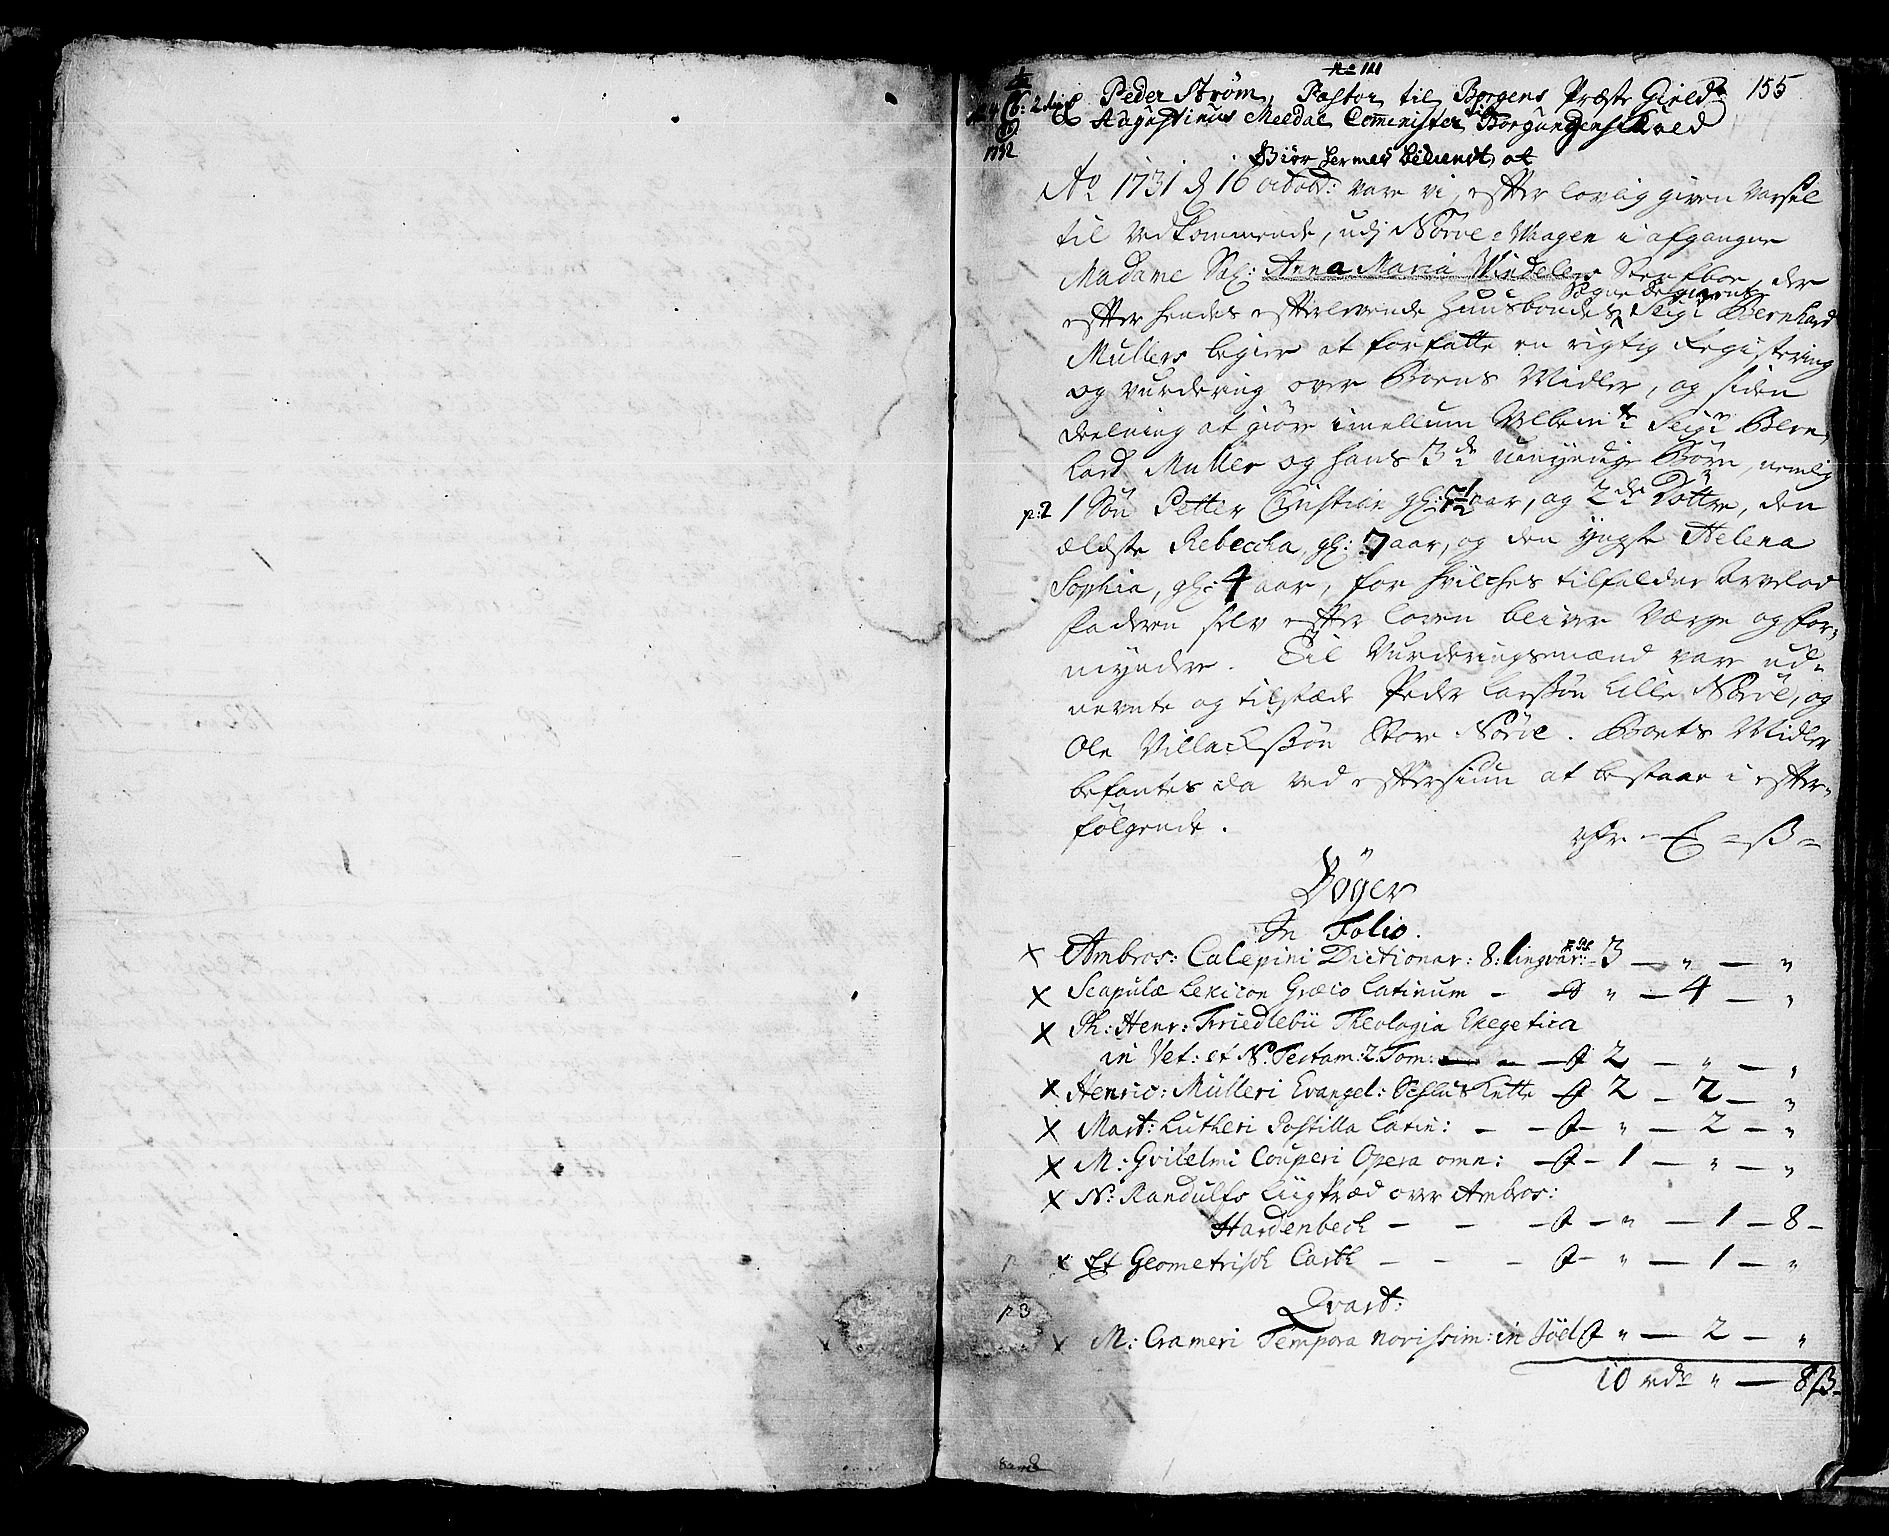 No 111
155
Peder Strøm, Pastor til Borgens Præste Gield
Augustinus Meldal Comminister til Borgunds Gield
1732
Giør hermed bekiendt at
Ao 1731 d 16 octobr: vare vi, efter lovlig given Varsel
til Vedkommende, udj Nørve-Waagen i afgangne
Madame Sal: Anna Maria Windelers Sterfboe, der
Sægne Begiering
efter hendes efterlevende Huusbondes Seigr Bernhard
Mullers begier at forfatte en rigtig Registering
og vurdering over Boens Midler, og siden
deelning at giøre imellum Velbemte Seigr Bern,
hard Muller og hans 3de umyndige Børn, nemlig
p:2 1 Søn Petter Christian gl: 7½ aar, og 2de Døttre, den
ældste Rebeccha, gl: 7 aar, og den yngste Helena
Sophia, gl: 4 aar, for hvilches tilfaldne Arvelod
Faderen selv efter loven bliver Værge og for,
mynder. Til Vurderingsmænd vare ud-
nevnte og tilstæde Peder Larssøn Lille Nørve, og
Ole Villachssøn Store Nørve. Boets Midler
befantes da ved eftersiun at bestaae i efter,
følgende.
rdr - - ß -
Bøger
In Folio.
× Ambros: Calepini Dictionar: 8: lingvar: 3 — " — "
× Scapulæ Lexicon Græco Latinum - " — 4 — "
× Ph: Henr: Friedlebii Theologia Exegetica
in Vet: et N. Testam: 2. Tom: — 2 — " — "
× Henric: Mülleri Evangel: Schlus Kette 2 — 2 — "
× Mart: Lutheri Postilla Latin: - - " — 2 — "
× M: Gvilelmi Couperi Opera omn: — 1 — " — "
× N: Randulfs Liigpræd over Ambros:
Hardenbech - - - " — 1 — 8 -
× Et Geometrisch Carth - - - " — 1 — "
Qvart:
p 3
× M: Crameri Tempora novissim: in Föl " — 2 — "
10 rdr " — 8 ß